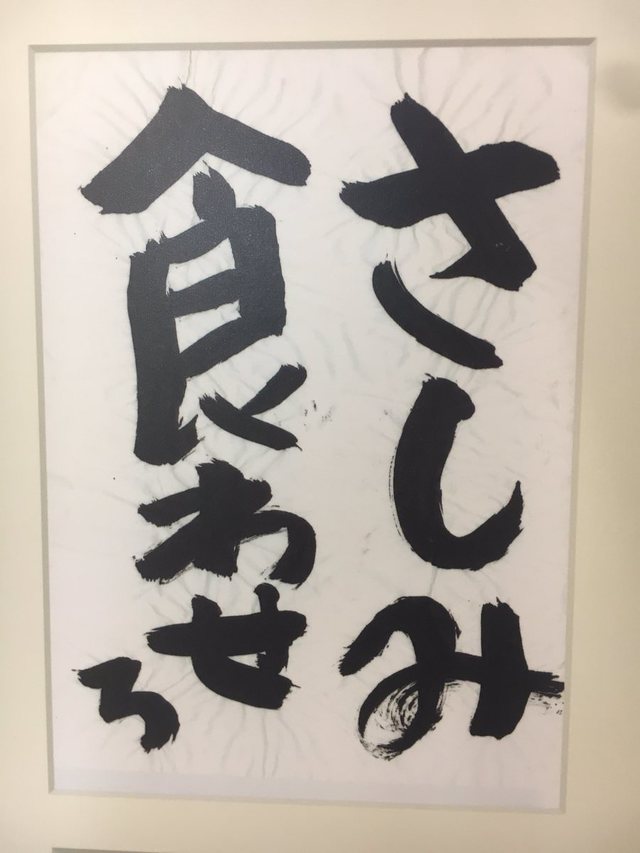 さしみ
食わせろ